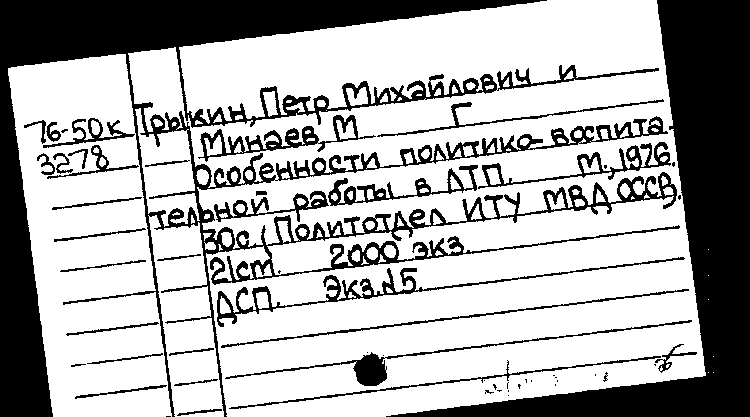 76-50к Трыкин, Петр Михайлович и
3278 Минаев, М Г
Особенности политико-воспита-
тельной работы в ЛТП. М., 1976.
30с. (Политотдел ИТУ МВД СССР).
21см. 2000 экз.
ДСП. Экз.№5.